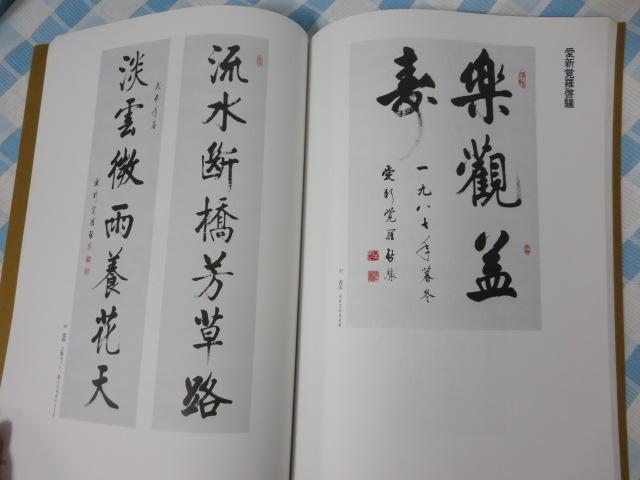 愛新覚羅啓驤
樂觀益
壽
一九八七年暮冬
愛新覺羅啓驤
流水斷橋芳草路
淡雲微雨養花天
愛新覺羅啓驤